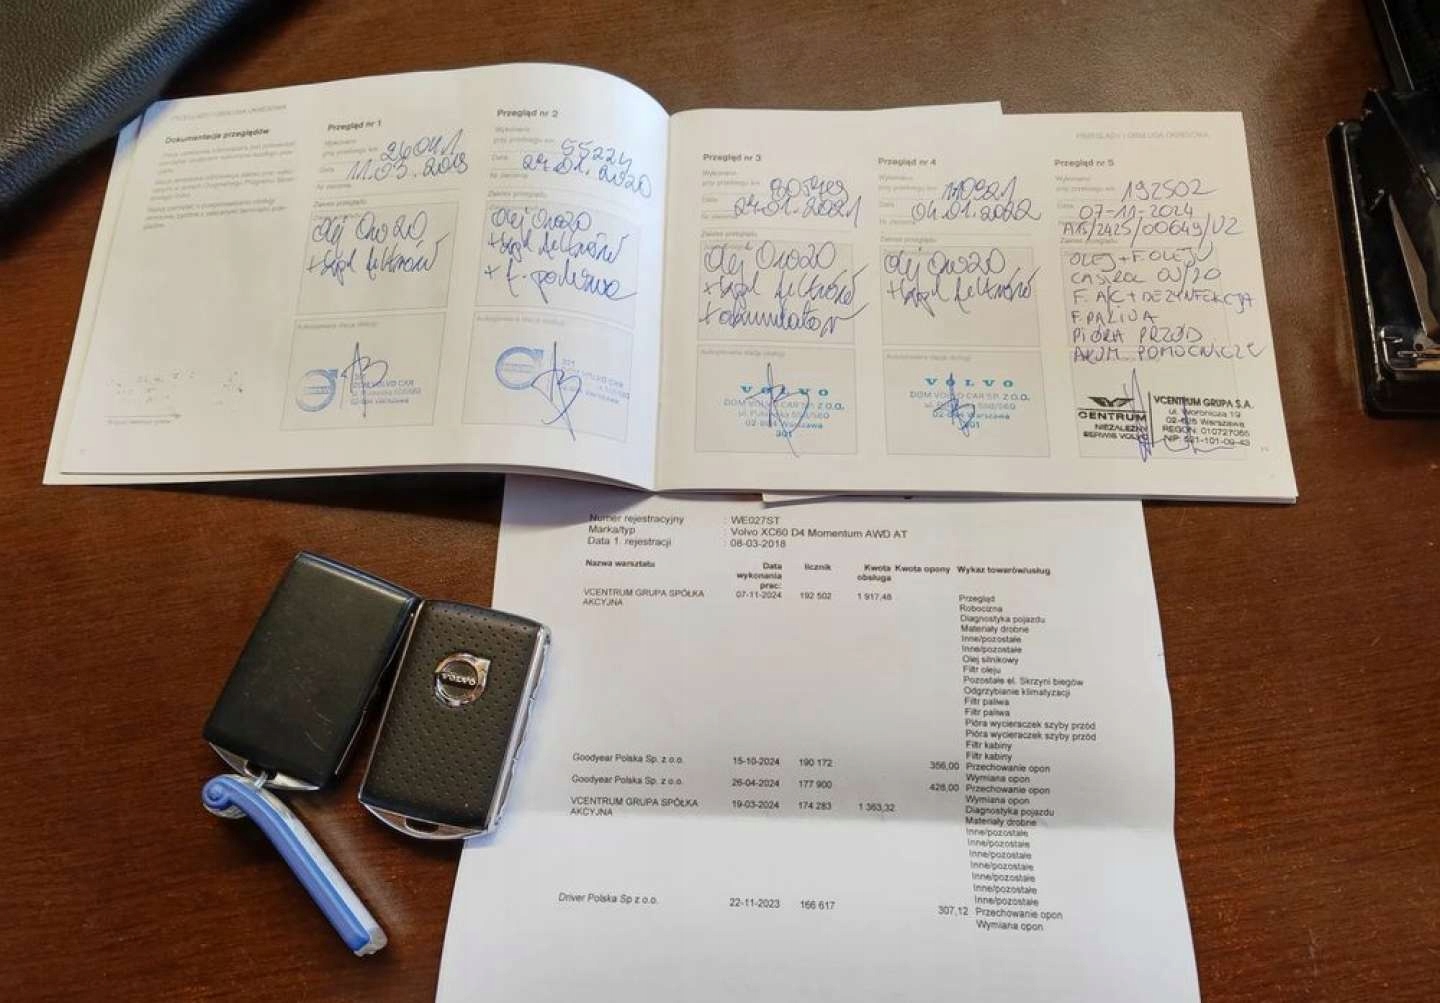 PRZEGLĄDY I OBSŁUGA OKRESOWA
Dokumentacja przeglądów
Przegląd nr 1
Wykonano
przy przebiegu km 26041
Data 11.03.2019
Nr zlecenia
Zakres przeglądu
olej 0W20
+ kpl filtrów
Autoryzowana stacja obsługi
301
DOM VOLVO CAR
Przegląd nr 2
Wykonano
przy przebiegu km 55224
Data 27.01.2020
Nr zlecenia
Zakres przeglądu
olej 0W20
+ kpl filtrów
+ f. paliwa
Autoryzowana stacja obsługi
Przegląd nr 3
Wykonano
przy przebiegu km
Data 27.01.2021
Nr zlecenia
Zakres przeglądu
olej 0W20
+ kpl filtrów
+ akumulator
Autoryzowana stacja obsługi
VOLVO
DOM VOLVO CAR SP. Z O.O.
ul. Puławska 558/560
02-884 Warszawa
301
Przegląd nr 4
Wykonano
przy przebiegu km
Data 04.01.2022
Nr zlecenia
Zakres przeglądu
olej 0W20
+ kpl filtrów
Autoryzowana stacja obsługi
VOLVO
DOM VOLVO CAR SP. Z O.O.
ul. Puławska 558/560
02-884 Warszawa
301
PRZEGLĄDY I OBSŁUGA OKRESOWA
Przegląd nr 5
Wykonano
przy przebiegu km 192502
Data 07-11-2024
A15/2425/00649/U2
Zakres przeglądu
OLEJ + F. OLEJU
CASTROL 0W20
F. A/C + DEZYNFEKCJA
F. PALIWA
PIÓRA PRZÓD
AKUM. POMOCNICZY
CENTRUM
NIEZALEŻNY
SERWIS VOLVO
VCENTRUM GRUPA S.A.
ul. Woronicza 19
02-625 Warszawa
REGON: 010727065
NIP: 521-101-09-43
VOLVO
Numer rejestracyjny : WE027ST
Marka/typ : Volvo XC60 D4 Momentum AWD AT
Data 1. rejestracji : 08-03-2018
Nazwa warsztatu Data wykonania prac: licznik Kwota obsługa Kwota opony Wykaz towarów/usług
VCENTRUM GRUPA SPÓŁKA AKCYJNA 07-11-2024 192 502 1 917,48 Przegląd
Robocizna
Diagnostyka pojazdu
Materiały drobne
Inne/pozostałe
Inne/pozostałe
Olej silnikowy
Filtr oleju
Pozostałe el. Skrzyni biegów
Odgrzybianie klimatyzacji
Filtr paliwa
Filtr paliwa
Pióra wycieraczek szyby przód
Pióra wycieraczek szyby przód
Filtr kabiny
Filtr kabiny
Goodyear Polska Sp. z o.o. 15-10-2024 190 172 356,00 Przechowanie opon
Wymiana opon
Goodyear Polska Sp. z o.o. 26-04-2024 177 900 428,00 Przechowanie opon
Wymiana opon
VCENTRUM GRUPA SPÓŁKA AKCYJNA 19-03-2024 174 283 1 363,32 Diagnostyka pojazdu
Materiały drobne
Inne/pozostałe
Inne/pozostałe
Inne/pozostałe
Inne/pozostałe
Inne/pozostałe
Inne/pozostałe
Inne/pozostałe
Driver Polska Sp z o.o. 22-11-2023 166 617 307,12 Przechowanie opon
Wymiana opon